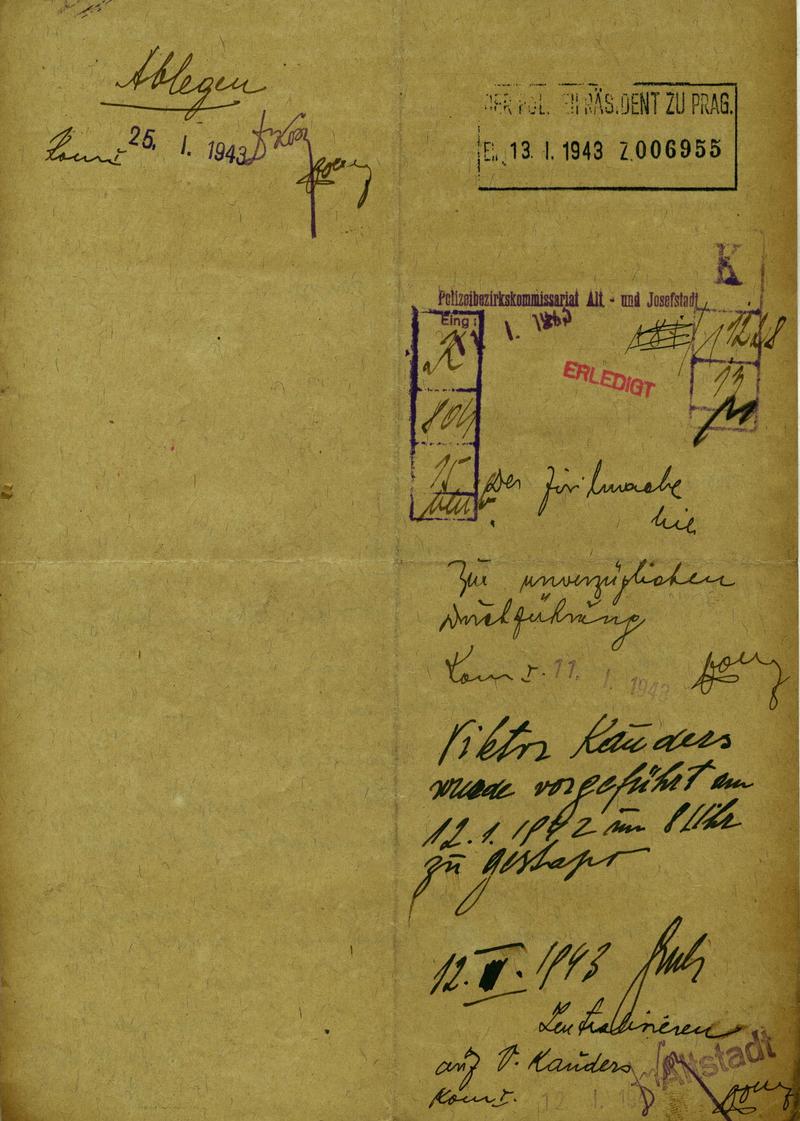 Ablegen
Kom I 25. I. 1943
DER POL. PRÄSIDENT ZU PRAG.
13 I. 1943 Z.006955
K
Polizeibezirkskommissariat Alt - und Josefstadt
Eing:
I.
K
804
15
ERLEDIGT
12
Der
hie
Zur unverzüglichen
Durchführung
Kom I. 11. I. 1943
Viktor Kauders
wurde vorgeführt am
12.1.1942 um 8 Uhr
zu gestapo
12. 1943
Zentralisieren
auf V. Kauders
Altstadt
Kom I. 12 I.